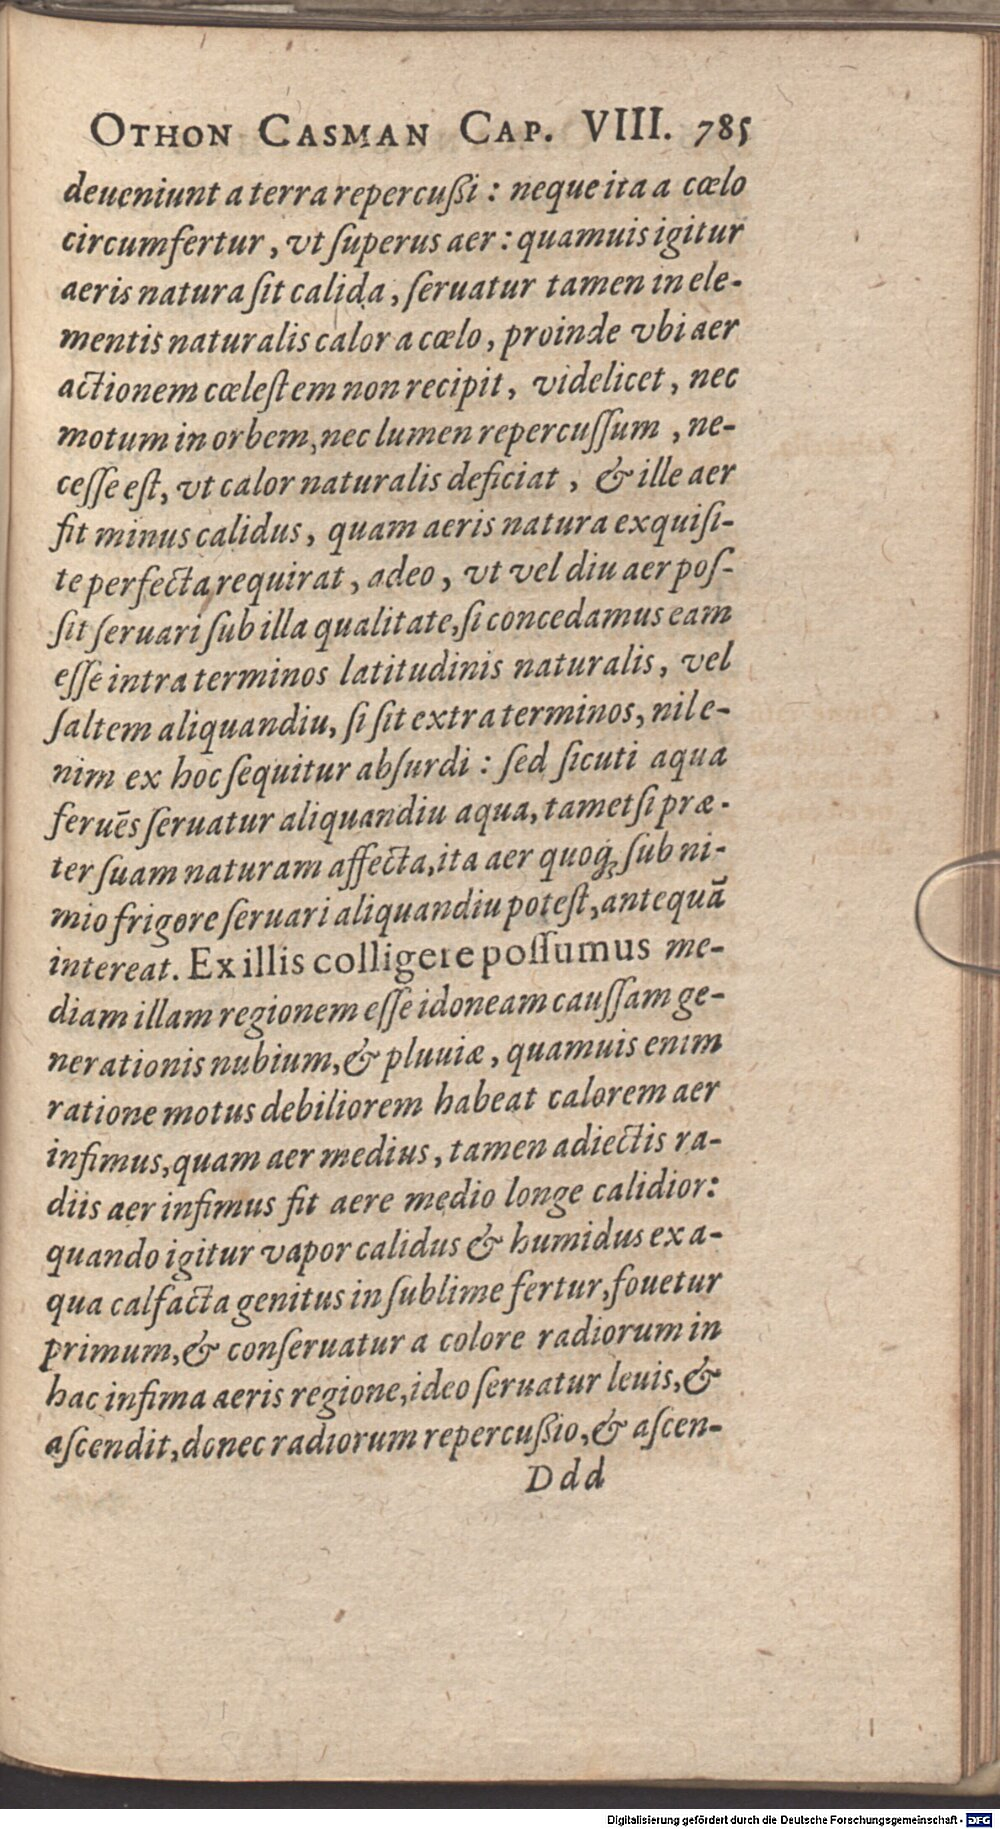 OTHON CASMAN CAP. VIII. 785
deueniunt a terra repercußi: neque ita a cœlo
circumfertur, vt ſuperus aer: quamuis igitur
aeris natura ſit calida, ſeruatur tamen in ele-
mentis naturalis calor a cœlo, proinde vbi aer
actionem cœleſtem non recipit, videlicet, nec
motum in orbem, nec lumen repercuſſum, ne-
ceſſe eſt, vt calor naturalis deficiat, & ille aer
fit minus calidus, quam aeris natura exquiſi-
te perfecta requirat, adeo, vt vel diu aer poſ-
ſit ſeruari ſub illa qualitate, ſi concedamus eam
eſſe intra terminos latitudinis naturalis, vel
ſaltem aliquandiu, ſi ſit extra terminos, nil e-
nim ex hoc ſequitur abſurdi: ſed ſicuti aqua
feruēs ſeruatur aliquandiu aqua, tametſi præ-
ter ſuam naturam affecta, ita aer quoq; ſub ni-
mio frigore ſeruari aliquandiu poteſt, antequā
intereat. Ex illis colligere poſſumus me-
diam illam regionem eſſe idoneam cauſſam ge-
nerationis nubium, & pluuiæ, quamuis enim
ratione motus debiliorem habeat calorem aer
infimus, quam aer medius, tamen adiectis ra-
diis aer infimus fit aere medio longe calidior:
quando igitur vapor calidus & humidus ex a-
qua calfacta genitus in ſublime fertur, fouetur
primum, & conſeruatur a colore radiorum in
hac infima aeris regione, ideo ſeruatur leuis, &
aſcendit, donec radiorum repercußio, & aſcen-
Ddd
Digitalisierung gefördert durch die Deutsche Forschungsgemeinschaft - DFG